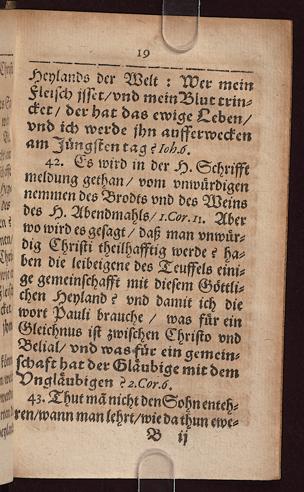 19
Heylands der Welt: Wer mein
Fleisch jsset/vnd mein Blut trin-
cket/der hat das ewige Leben/
vnd ich werde jhn aufferwecken
am Jüngsten tag? Ioh.6.
42. Es wird in der H. Schrifft
meldung gethan/vom vnwürdigen
nemmen des Brodts vnd des Weins
des H. Abendmahls/1.Cor.11. Aber
wo wird es gesagt/daß man vnwür-
dig Christi theilhafftig werde? ha-
ben die leibeigene des Teuffels eini-
ge gemeinschafft mit diesem Göttli-
chen Heyland? vnd damit ich die
wort Pauli brauche/ was für ein
Gleichnus ist zwischen Christo vnd
Belial/vnd was für ein gemein-
schafft hat der Gläubige mit dem
Vngläubigen? 2.Cor.6.
43. Thut mā nicht den Sohn enteh-
ren/wann man lehrt/wie da thun ewe-
B ij